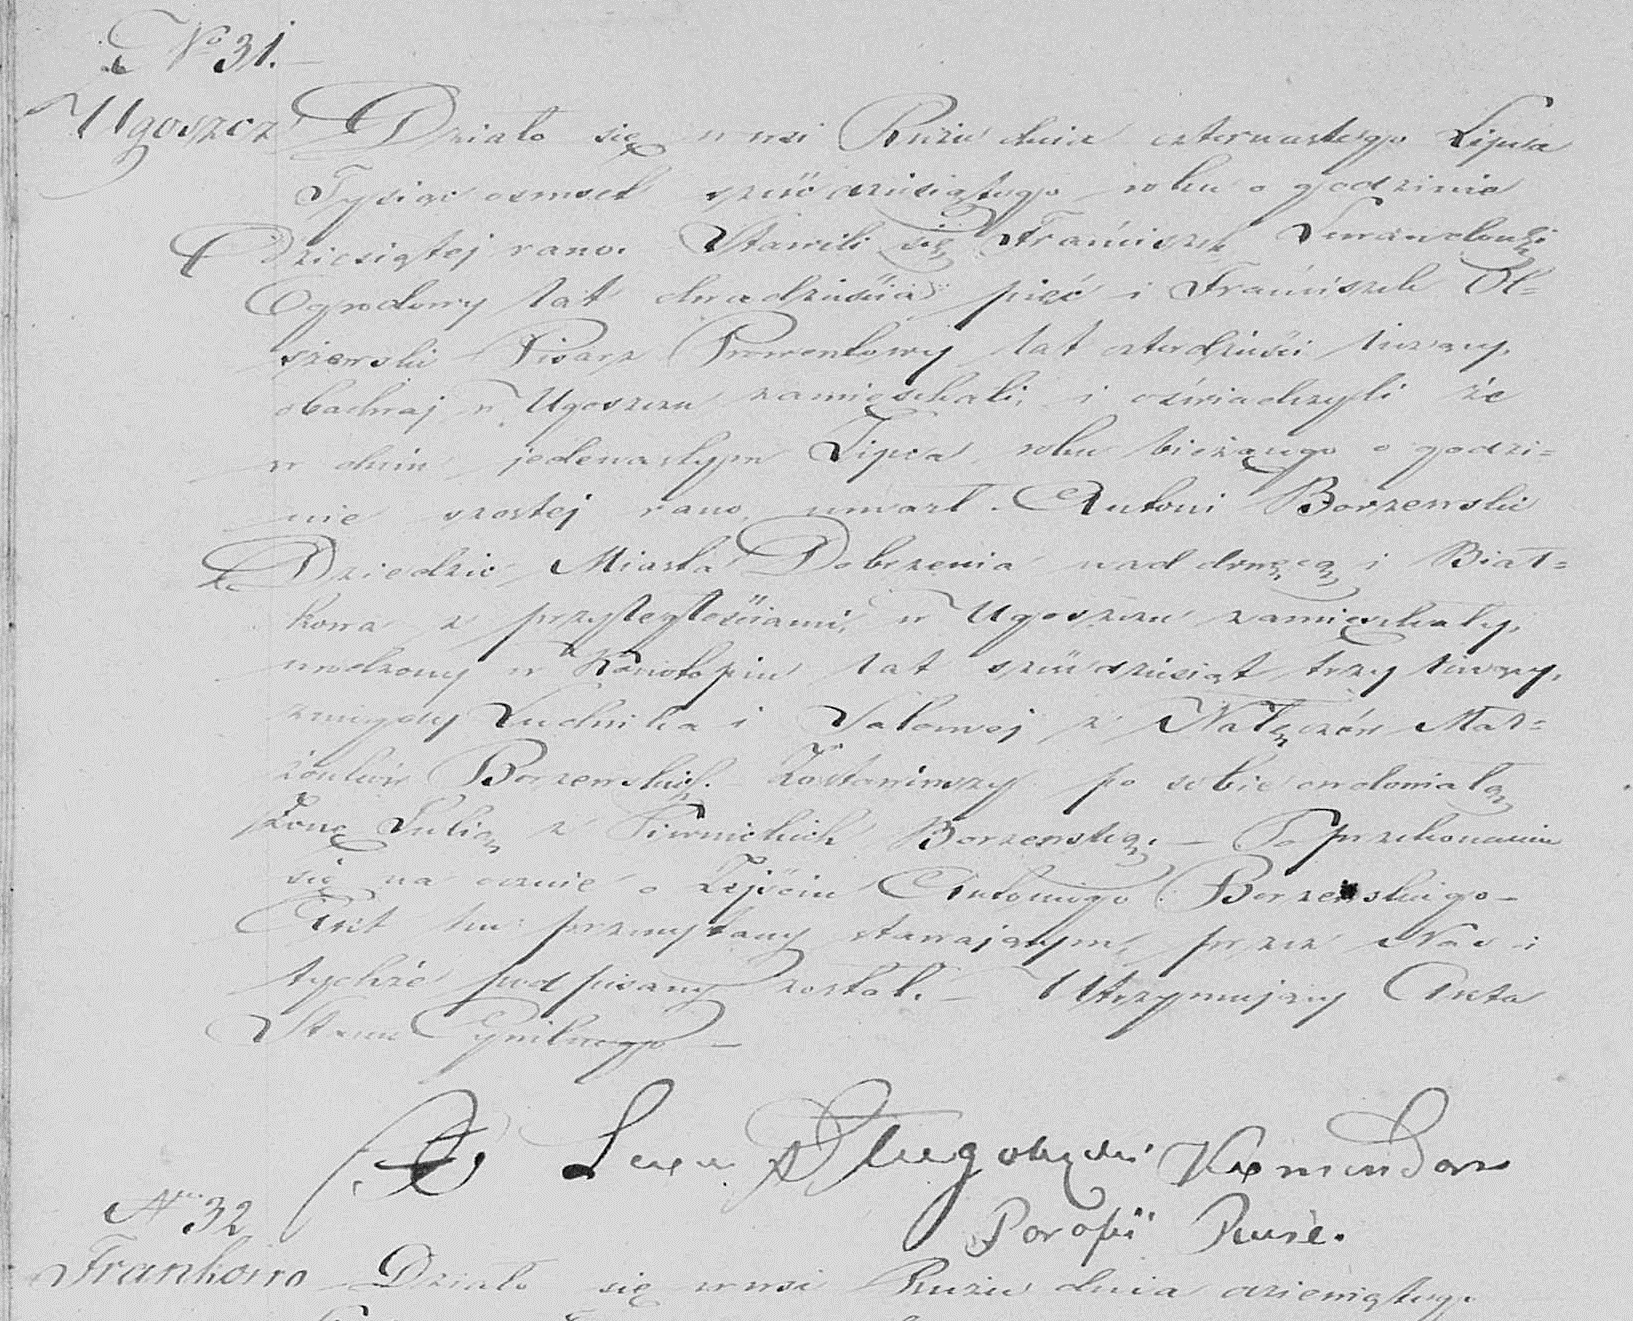 No 31.
Ugoszcz Działo się w wsi Rużu dnia czternastego Lipca
Tysiąc osmset sześćdziesiątego roku o godzinie
Dziesiątej rano. Stawili się Franciszek
Ogrodowy lat dwadzieścia pięć i Franciszek Ol=
szewski Pisarz Prowentowy lat czterdzieści liczący,
obadwaj w Ugoszczu zamieszkali, i oświadczyli że
w dniu jedenastym Lipca roku bieżącego o godzi=
nie szostej rano umarł. Antoni Borzewski
Dziedzic Miasta Dobrzenia nad drwęcą i Biał=
kowa z przyległościami, w Ugoszczu zamieszkały,
urodzony w Konotopiu lat sześćdziesiąt trzy liczący,
zrodzony Ludwika i Salomei z Nałęczów Mał=
żonków Borzewskich. Zostawiwszy po sobie owdowiałą
Żonę Julią z Piwnickich Borzewską. — Po przekonaniu
się na ocznie o Zejściu Antoniego Borzewskiego —
Akt ten przeczytany stawającym, przez Nas i
tychże podpisany został. — Utrzymujący Akta
Stanu Cywilnego —
X Komendarz
Parafii Ruże.
No 32
Frankowo Działo się w wsi Rużu dnia dziewiątego